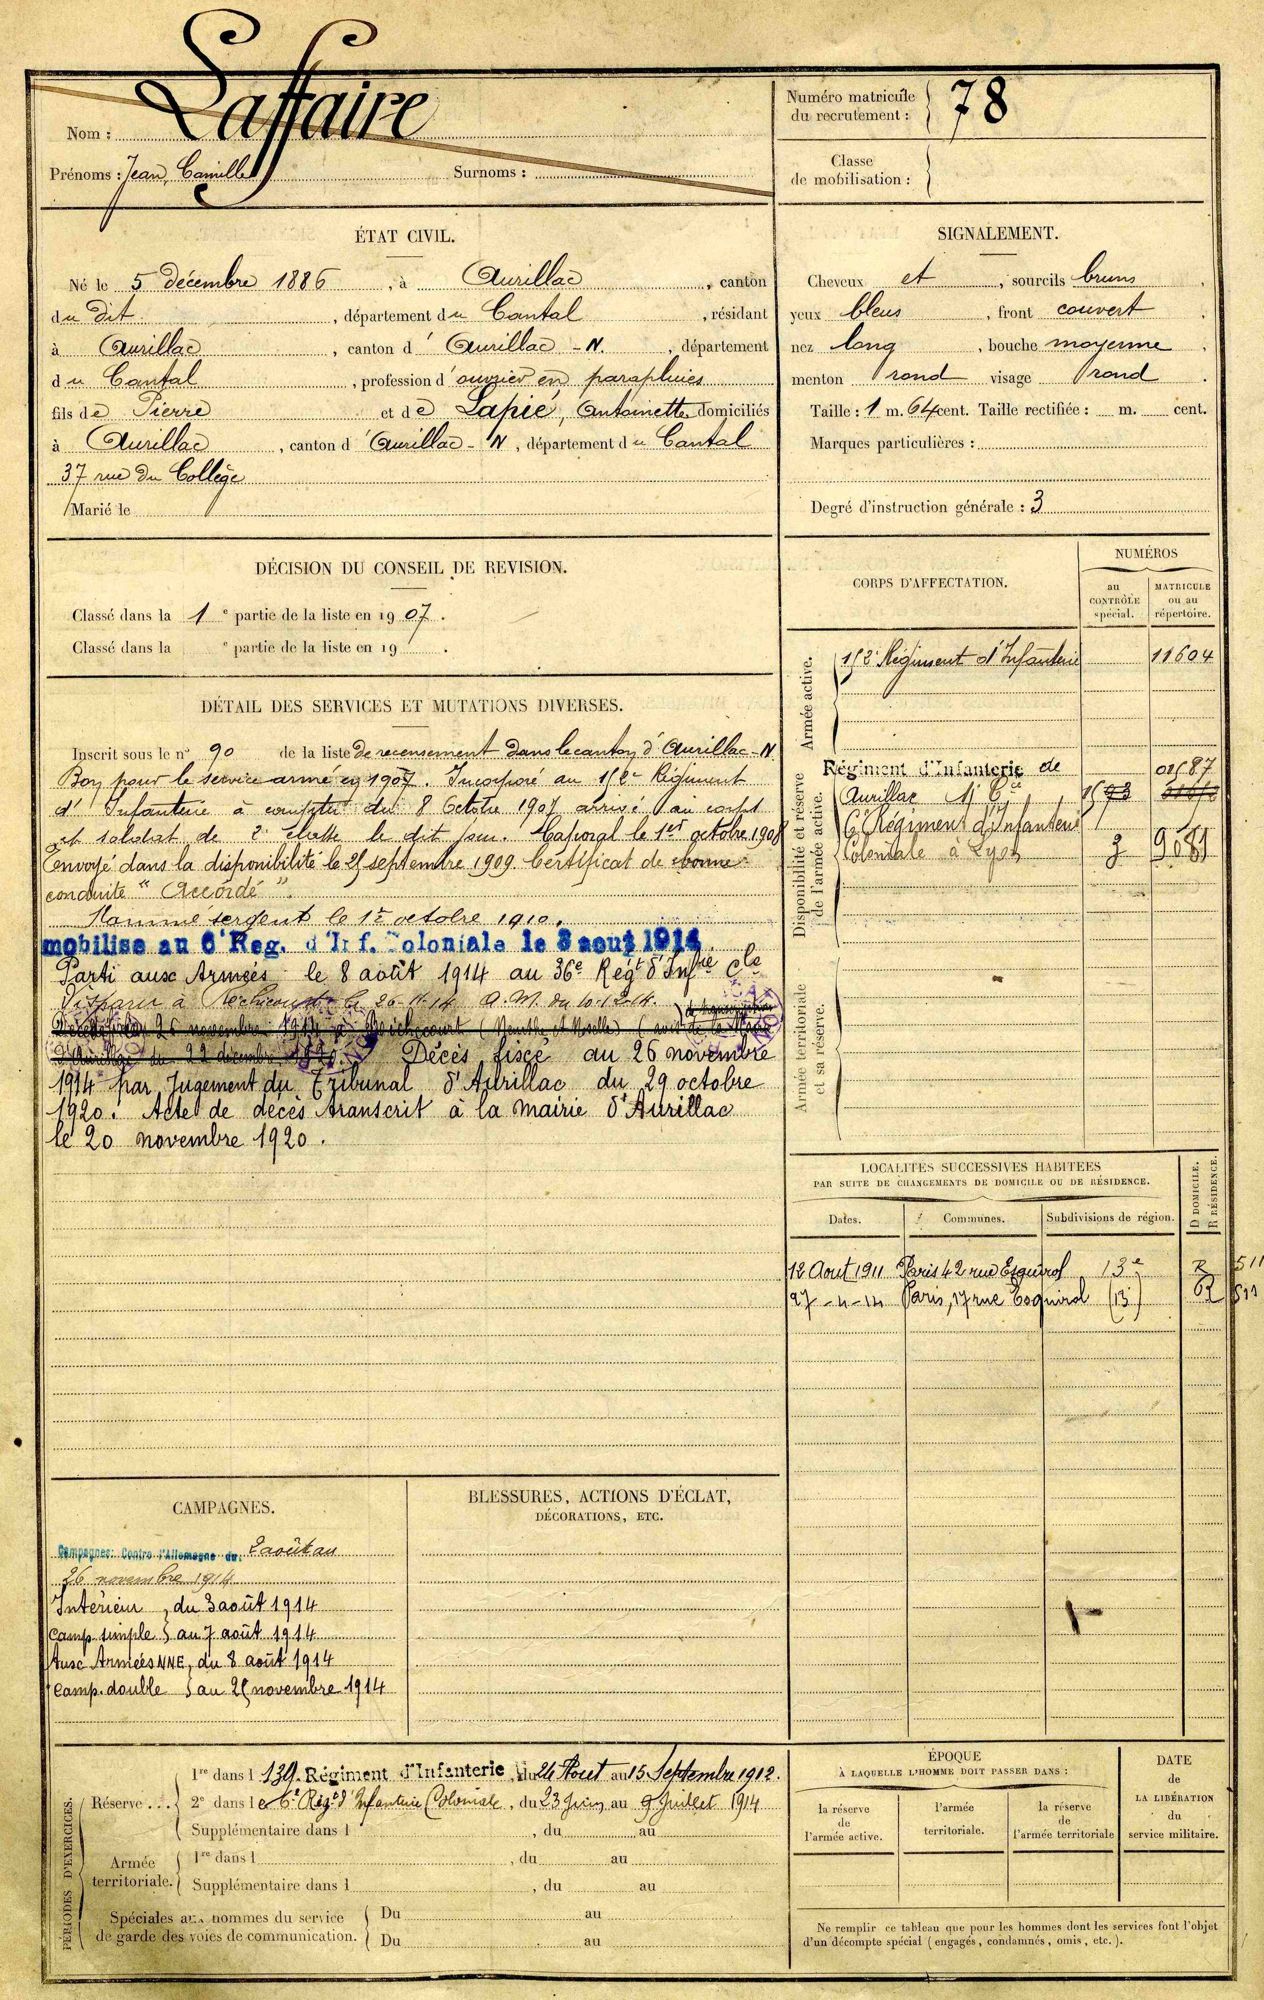 Nom : Laffaire
Prénoms : Jean, Camille Surnoms :
Numéro matricule du recrutement : 78
Classe de mobilisation :
ÉTAT CIVIL.
Né le 5 décembre 1886, à Aurillac, canton
du dit, département du Cantal, résidant
à Aurillac, canton d'Aurillac - N., département
du Cantal, profession d'ouvrier en parapluies
fils de Pierre et de Lapié, Antoinette domiciliés
à Aurillac, canton d'Aurillac - N, département du Cantal
37 rue du Collège
Marié le
SIGNALEMENT.
Cheveux et, sourcils bruns,
yeux bleus, front couvert,
nez long, bouche moyenne,
menton rond visage rond.
Taille : 1 m. 64 cent. Taille rectifiée : m. cent.
Marques particulières :
Degré d'instruction générale : 3
DÉCISION DU CONSEIL DE REVISION.
Classé dans la 1e partie de la liste en 1907.
Classé dans la e partie de la liste en 19 .
DÉTAIL DES SERVICES ET MUTATIONS DIVERSES.
Inscrit sous le n° 90 de la liste de recensement dans le canton d'Aurillac - N
Bon pour le service armé en 1907. Incorporé au 152e Régiment
d'Infanterie à compter du 8 Octobre 1907 arrivé au corps
et soldat de 2e classe le dit jour. Caporal le 1er octobre 1908
Envoyé dans la disponibilité le 25 septembre 1909. Certificat de bonne
conduite "Accordé".
Nommé sergent le 1er octobre 1910.
mobilise au 6e Reg. d'Inf. Coloniale le 3 aout 1914
Parti aux Armées le 8 août 1914 au 36e Régt d'Infrie Cle
Disparu à le 26-11-14 A.M. du 10-12-14.
26 novembre 1914 à (Meurthe et Moselle) (avis de la Mairie
d'Aurillac du 22 décembre 1920. Décès fixé au 26 novembre
1914 par Jugement du Tribunal d'Aurillac du 29 octobre
1920. Acte de décès transcrit à la mairie d'Aurillac
le 20 novembre 1920.
CORPS D'AFFECTATION.
NUMÉROS
au CONTRÔLE spécial.
MATRICULE ou au répertoire.
Armée active.
152e Régiment d'Infanterie 11604
Disponibilité et réserve de l'armée active.
Régiment d'Infanterie de 01587
Aurillac
6e Régiment d'Infanterie
Coloniale à Lyon 9081
Armée territoriale et sa réserve.
LOCALITÉS SUCCESSIVES HABITÉES
PAR SUITE DE CHANGEMENTS DE DOMICILE OU DE RÉSIDENCE.
Dates. Communes. Subdivisions de région. D DOMICILE. R RÉSIDENCE.
12 Aout 1911 Paris 42 rue Esquirol 13e R 511
27-4-14 Paris, 17 rue Esquirol (13) R 511
CAMPAGNES.
Campagnes: Contre l'Allemagne du: 2 août au
26 novembre 1914
Intérieur } du 3 août 1914
camp. simple } au 7 août 1914
Aux Armées NNE } du 8 août 1914
camp. double } au 25 novembre 1914
BLESSURES, ACTIONS D'ÉCLAT,
DÉCORATIONS, ETC.
PÉRIODES D'EXERCICES.
Réserve ... 1re dans l 139. Régiment d'Infanterie, du 24 Aout au 15 Septembre 1912.
2e dans le 6e Régt d'Infanterie Coloniale, du 23 Juin au 9 Juillet 1914
Supplémentaire dans l , du au
Armée territoriale. 1re dans l , du au
Supplémentaire dans l , du au
Spéciales aux hommes du service de garde des voies de communication. Du au
Du au
ÉPOQUE
À LAQUELLE L'HOMME DOIT PASSER DANS :
la réserve de l'armée active.
l'armée territoriale.
la réserve de l'armée territoriale
DATE de LA LIBÉRATION du service militaire.
Ne remplir ce tableau que pour les hommes dont les services font l'objet
d'un décompte spécial (engagés, condamnés, omis, etc.).